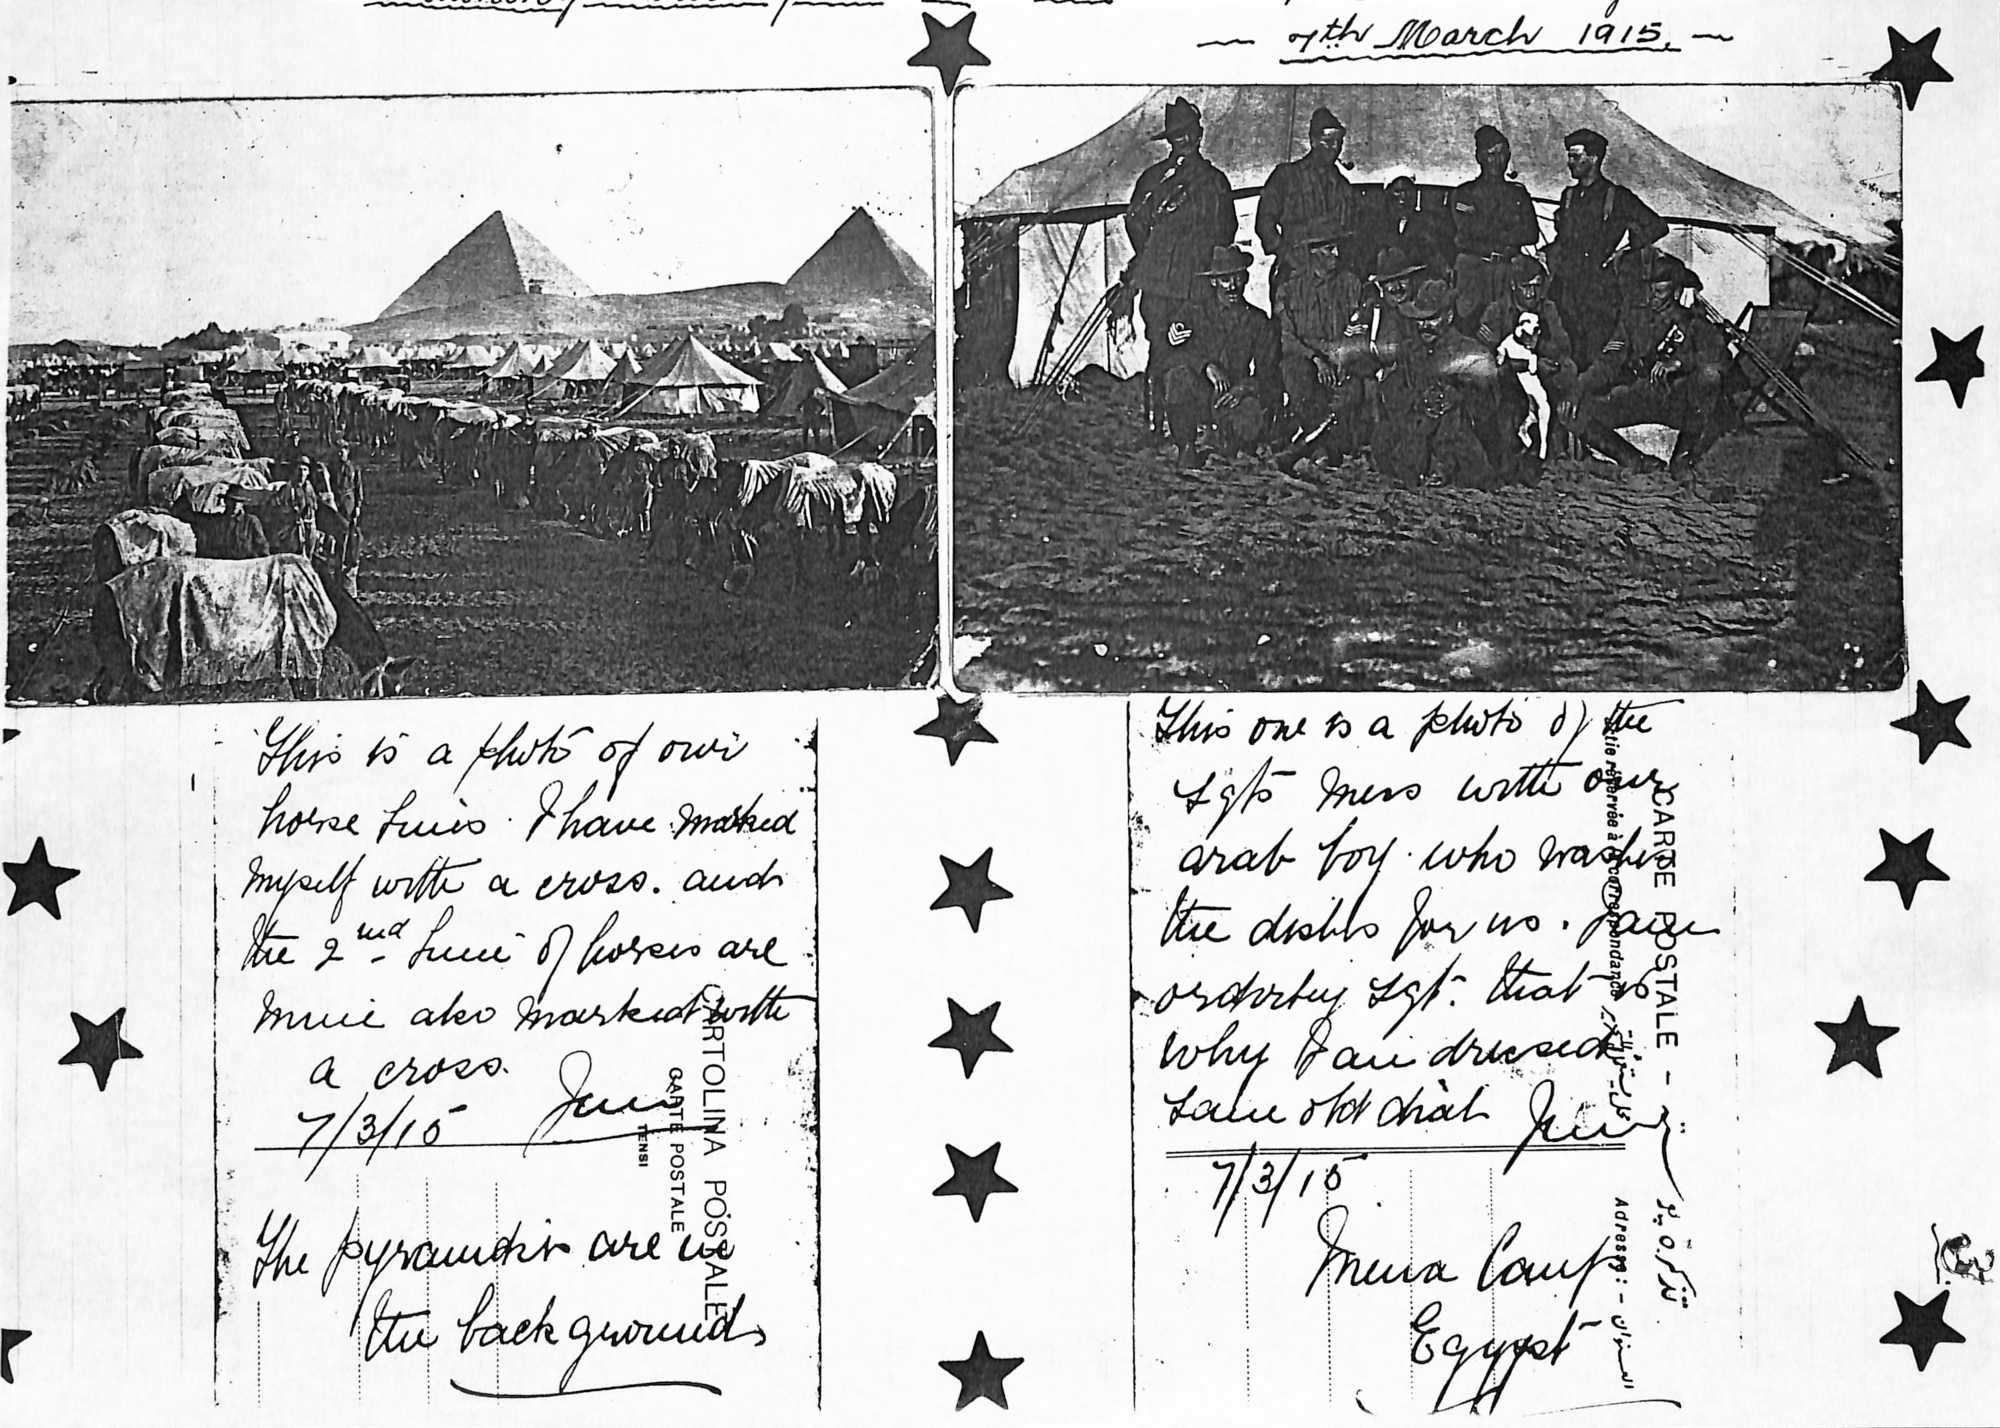 7th March 1915.
This is a photo of our
horse lines. I have marked
myself with a cross. and
the 2nd line of horses are
mine also marked with
a cross.
7/3/15
CARTOLINA POSTALE
CARTE POSTALE
TENSI
The pyramids are in
the background
This one is a photo of the
Sgts Mess with our
arab boy. who washes
the dishes for us. I am
orderly Sgt. that is
why I am dressed
same old dial
7/3/15
Mena Camp
Egypt
CARTE POSTALE -
réservée à la correspondance
Adresse: -